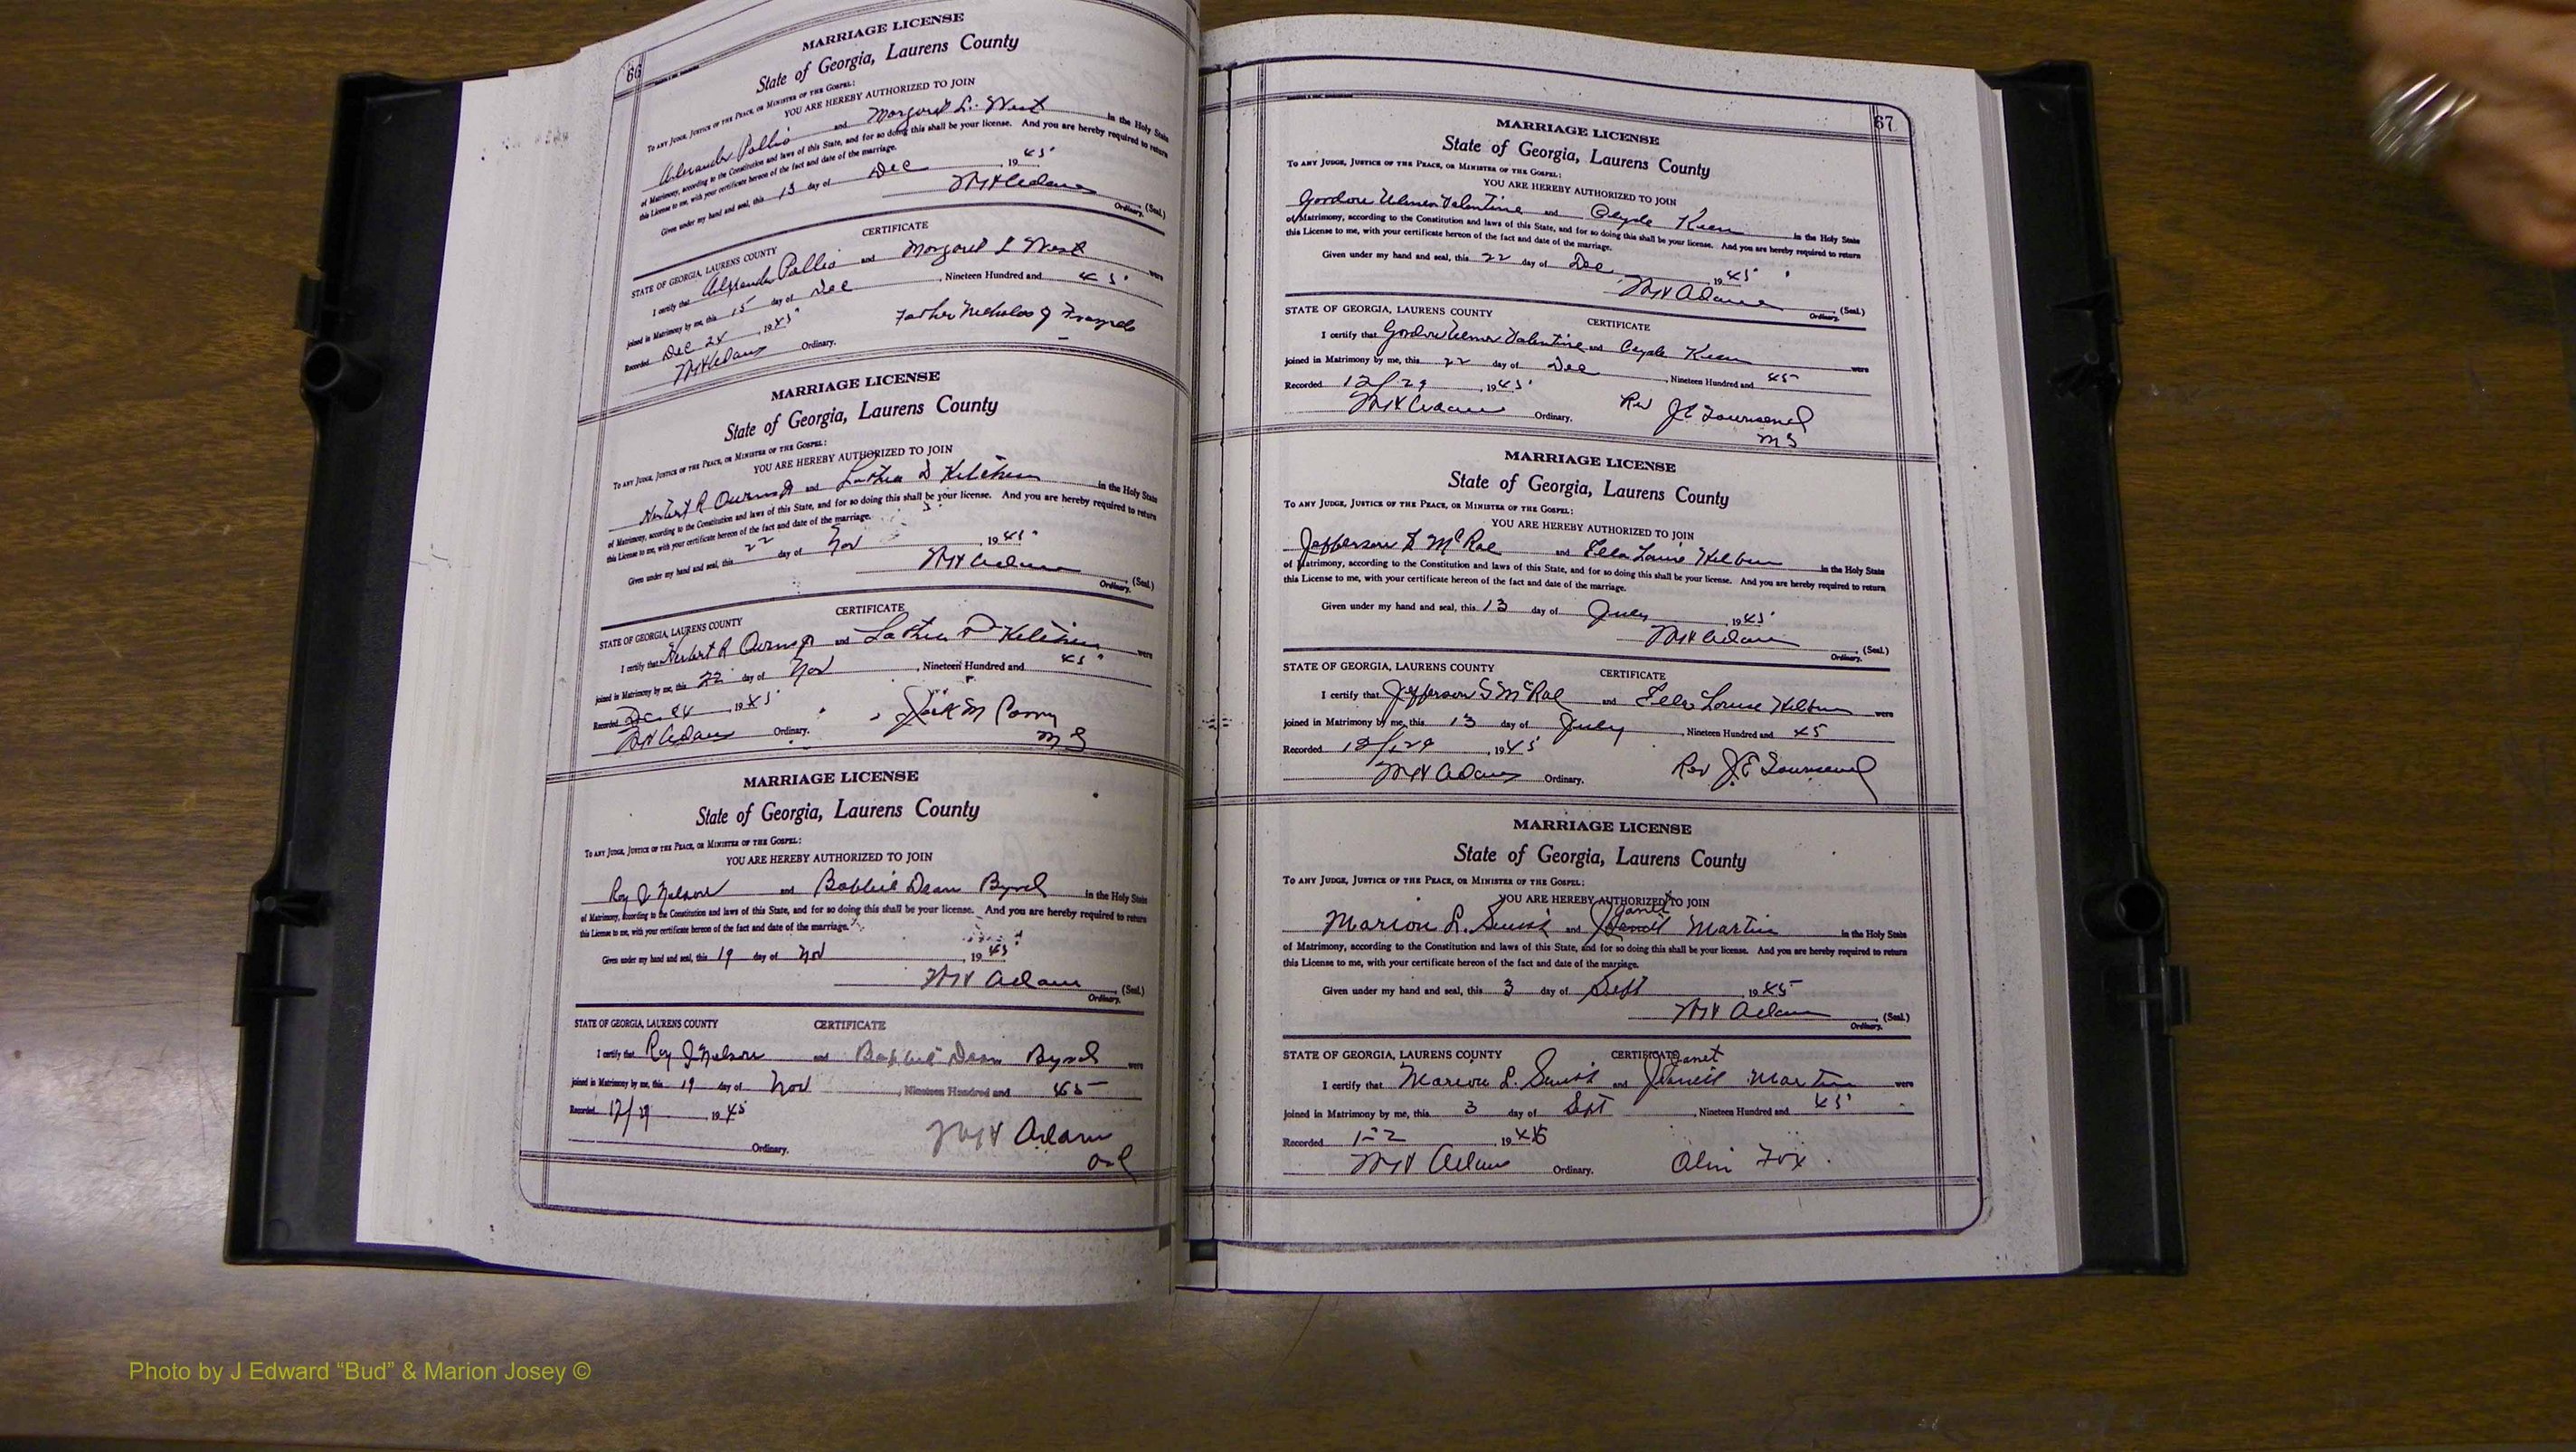 66
MARRIAGE LICENSE
State of Georgia, Laurens County
To any Judge, Justice of the Peace, or Minister of the Gospel:
YOU ARE HEREBY AUTHORIZED TO JOIN
Alexander Pallis and Margaret L. West in the Holy State
of Matrimony, according to the Constitution and laws of this State, and for so doing this shall be your license. And you are hereby required to return
this License to me, with your certificate hereon of the fact and date of the marriage.
Given under my hand and seal, this 13 day of Dec, 1945
Adams (Seal.)
Ordinary.
CERTIFICATE
STATE OF GEORGIA, LAURENS COUNTY
I certify that Alexander Pallis and Margaret L West were
joined in Matrimony by me, this 15 day of Dec, Nineteen Hundred and 45
Recorded Dec 24, 1945 Father Nicholas
Adams Ordinary.
MARRIAGE LICENSE
State of Georgia, Laurens County
To any Judge, Justice of the Peace, or Minister of the Gospel:
YOU ARE HEREBY AUTHORIZED TO JOIN
Herbert R Owens Jr and D in the Holy State
of Matrimony, according to the Constitution and laws of this State, and for so doing this shall be your license. And you are hereby required to return
this License to me, with your certificate hereon of the fact and date of the marriage.
Given under my hand and seal, this 22 day of Nov, 1945
Adams (Seal.)
Ordinary.
CERTIFICATE
STATE OF GEORGIA, LAURENS COUNTY
I certify that Herbert R Owens Jr and were
joined in Matrimony by me, this 22 day of Nov, Nineteen Hundred and 45
Recorded Dec 24, 1945 Jack M
Adams Ordinary. M G
MARRIAGE LICENSE
State of Georgia, Laurens County
To any Judge, Justice of the Peace, or Minister of the Gospel:
YOU ARE HEREBY AUTHORIZED TO JOIN
Roy J Nelson and Bobbie Dean Byrd in the Holy State
of Matrimony, according to the Constitution and laws of this State, and for so doing this shall be your license. And you are hereby required to return
this License to me, with your certificate hereon of the fact and date of the marriage.
Given under my hand and seal, this 19 day of Nov, 1945
Adams (Seal.)
Ordinary.
STATE OF GEORGIA, LAURENS COUNTY CERTIFICATE
I certify that Roy J Nelson and Bobbie Dean Byrd were
joined in Matrimony by me, this 19 day of Nov, Nineteen Hundred and 45
Recorded 12/29, 1945
Adams
Ordinary. Ord
67
MARRIAGE LICENSE
State of Georgia, Laurens County
To any Judge, Justice of the Peace, or Minister of the Gospel:
YOU ARE HEREBY AUTHORIZED TO JOIN
Gordon Valentine and Clyde Keen in the Holy State
of Matrimony, according to the Constitution and laws of this State, and for so doing this shall be your license. And you are hereby required to return
this License to me, with your certificate hereon of the fact and date of the marriage.
Given under my hand and seal, this 22 day of Dec, 1945
Adams (Seal.)
Ordinary.
STATE OF GEORGIA, LAURENS COUNTY CERTIFICATE
I certify that Gordon Valentine and Clyde Keen were
joined in Matrimony by me, this 22 day of Dec, Nineteen Hundred and 45
Recorded 12/29, 1945
Adams Ordinary. Rev J E Townsend
M G
MARRIAGE LICENSE
State of Georgia, Laurens County
To any Judge, Justice of the Peace, or Minister of the Gospel:
YOU ARE HEREBY AUTHORIZED TO JOIN
Jefferson McRae and Louise in the Holy State
of Matrimony, according to the Constitution and laws of this State, and for so doing this shall be your license. And you are hereby required to return
this License to me, with your certificate hereon of the fact and date of the marriage.
Given under my hand and seal, this 13 day of July, 1945
Adams (Seal.)
Ordinary.
STATE OF GEORGIA, LAURENS COUNTY CERTIFICATE
I certify that Jefferson McRae and Louise were
joined in Matrimony by me, this 13 day of July, Nineteen Hundred and 45
Recorded 12/29, 1945
Adams Ordinary. Rev J E Townsend
MARRIAGE LICENSE
State of Georgia, Laurens County
To any Judge, Justice of the Peace, or Minister of the Gospel:
YOU ARE HEREBY AUTHORIZED TO JOIN
Janet
Marion L. Smith and Martin in the Holy State
of Matrimony, according to the Constitution and laws of this State, and for so doing this shall be your license. And you are hereby required to return
this License to me, with your certificate hereon of the fact and date of the marriage.
Given under my hand and seal, this 3 day of Sept, 1945
Adams (Seal.)
Ordinary.
STATE OF GEORGIA, LAURENS COUNTY CERTIFICATE
Janet
I certify that Marion L. Smith and Martin were
joined in Matrimony by me, this 3 day of Sept, Nineteen Hundred and 45
Recorded 1-2, 1946
Adams Ordinary. Fox
Photo by J Edward “Bud” & Marion Josey ©